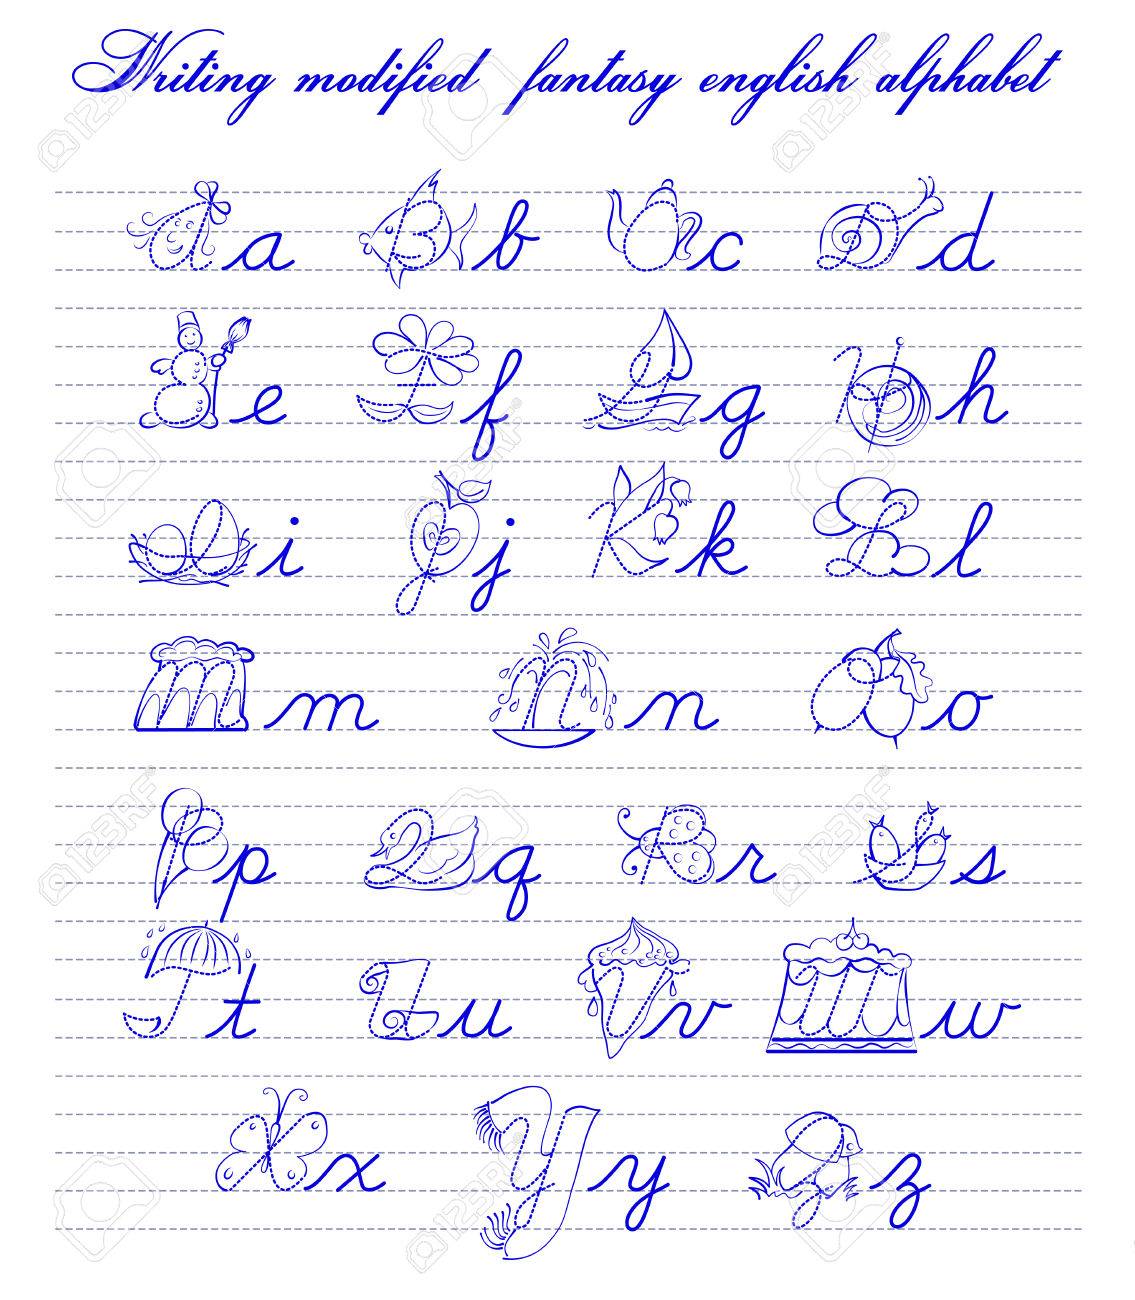 Writing modified fantasy english alphabet
A a B b C c D d
E e F f G g H h
I i J j K k L l
M m N n O o
P p Q q R r S s
T t U u V v W w
X x Y y Z z
123RF